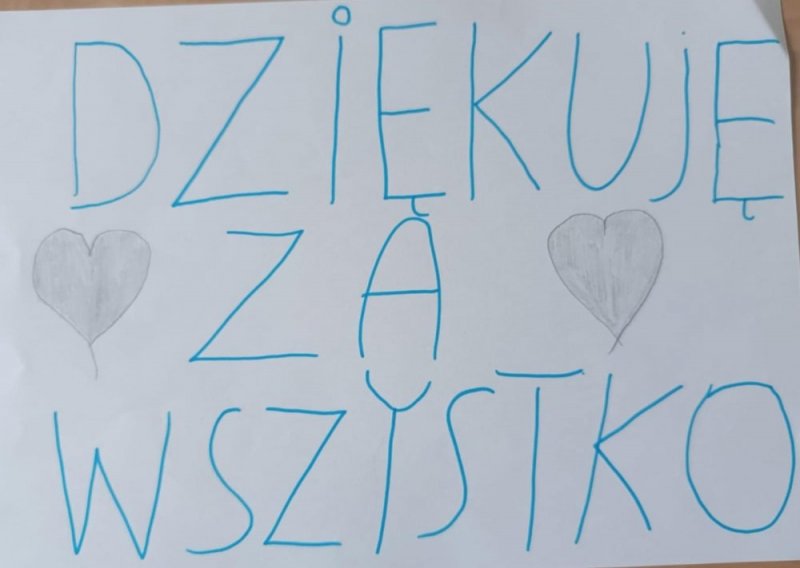 DZiĘKUJĘ
ZA
WSZYSTKO